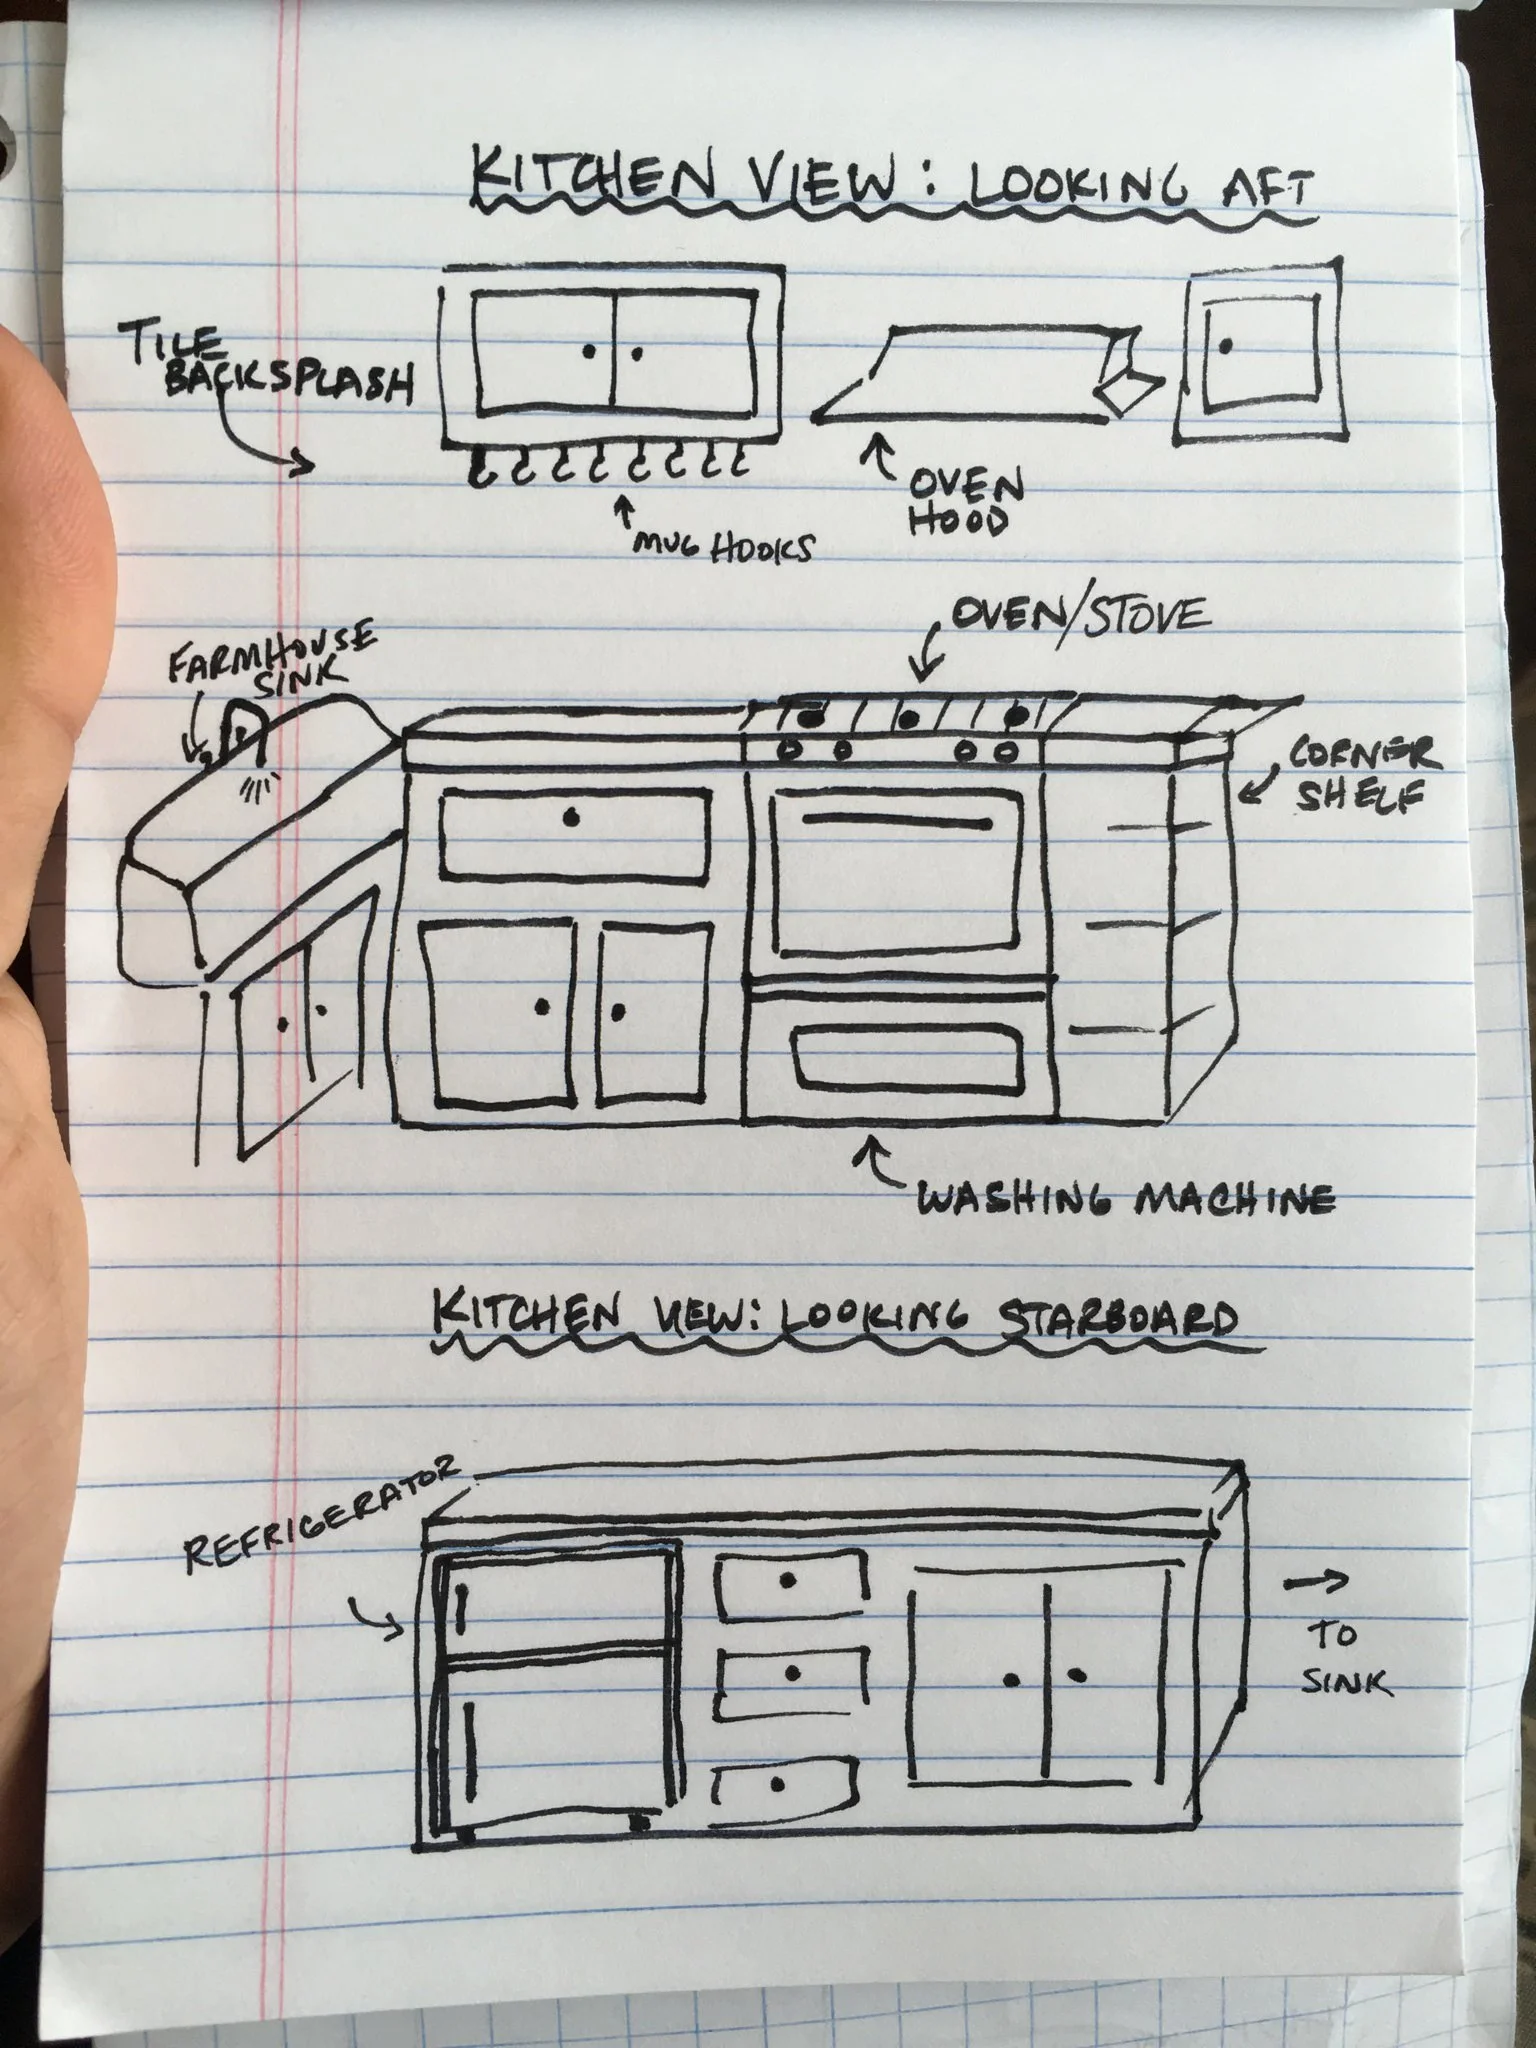 KITCHEN VIEW: LOOKING AFT
TILE
BACKSPLASH
OVEN
HOOD
MUG HOOKS
OVEN/STOVE
FARMHOUSE
SINK
CORNER
SHELF
WASHING MACHINE
KITCHEN VIEW: LOOKING STARBOARD
REFRIGERATOR
TO
SINK